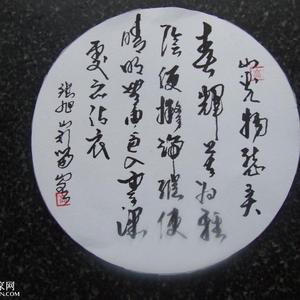 山光物態弄
春輝莫为輕
陰便擬歸縱使
晴明無雨色入雲深
處亦沾衣
張旭山行留客
家网